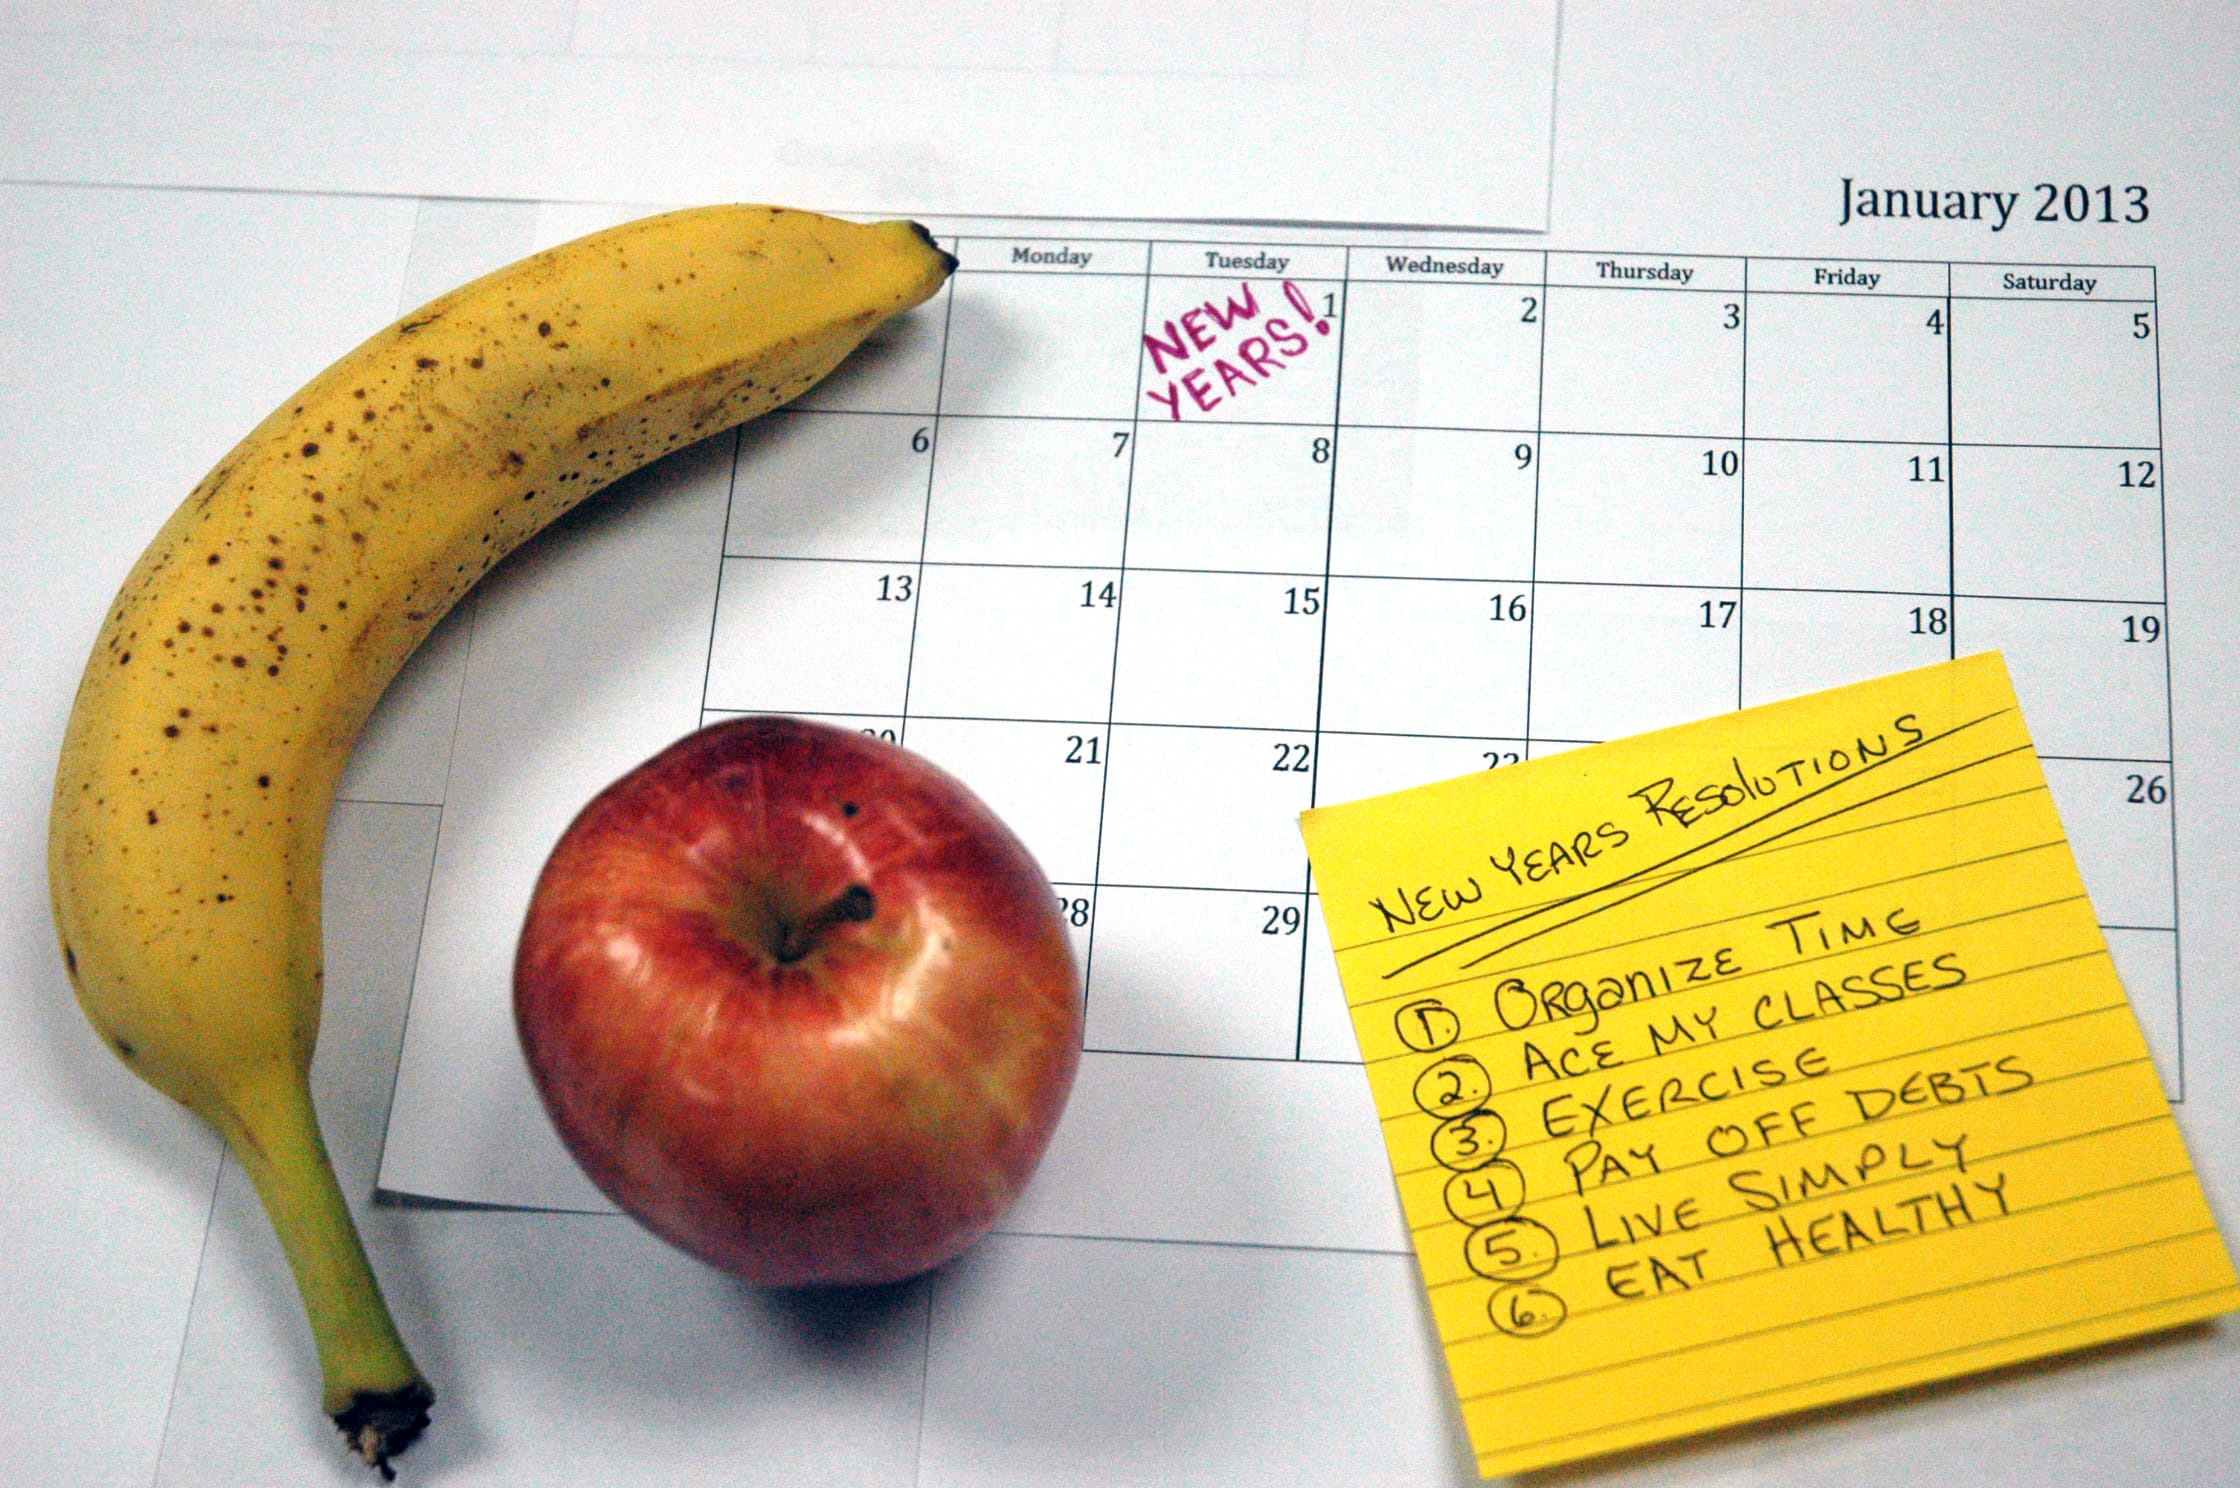 January 2013
Monday Tuesday Wednesday Thursday Friday Saturday
NEW
YEARS!
1 2 3 4 5
6 7 8 9 10 11 12
13 14 15 16 17 18 19
21 22 26
29
NEW YEARS RESOLUTIONS
1. ORGANIZE TIME
2. ACE MY CLASSES
3. EXERCISE
4 PAY OFF DEBTS
5. LIVE SIMPLY
6. EAT HEALTHY